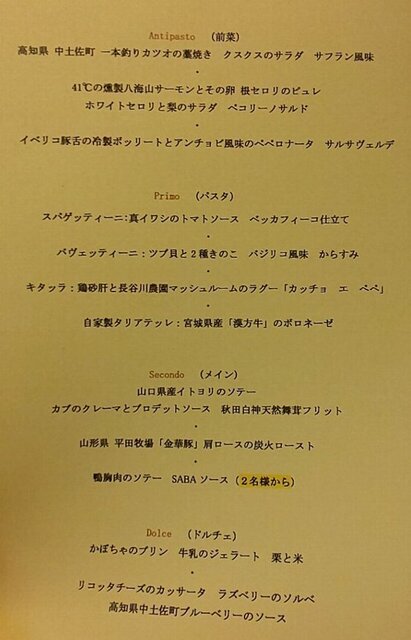 Antipasto （前菜）
高知県 中土佐町 一本釣りカツオの藁焼き　クスクスのサラダ　サフラン風味
・
41℃の燻製八海山サーモンとその卵 根セロリのピュレ
ホワイトセロリと梨のサラダ　ペコリーノサルド
・
イベリコ豚舌の冷製ボッリートとアンチョビ風味のペペロナータ　サルサヴェルデ
Primo （パスタ）
スパゲッティーニ：真イワシのトマトソース　ベッカフィーコ仕立て
・
バヴェッティーニ：ツブ貝と2種きのこ　バジリコ風味　からすみ
・
キタッラ：鶏砂肝と長谷川農園マッシュルームのラグー「カッチョ　エ　ペペ」
・
自家製タリアテッレ：宮城県産「漢方牛」のボロネーゼ
Secondo （メイン）
山口県産イトヨリのソテー
カブのクレーマとブロデットソース　秋田白神天然舞茸フリット
・
山形県 平田牧場「金華豚」肩ロースの炭火ロースト
・
鴨胸肉のソテー　SABAソース（2名様から）
Dolce （ドルチェ）
かぼちゃのプリン　牛乳のジェラート　栗と米
・
リコッタチーズのカッサータ　ラズベリーのソルベ
高知県中土佐町ブルーベリーのソース